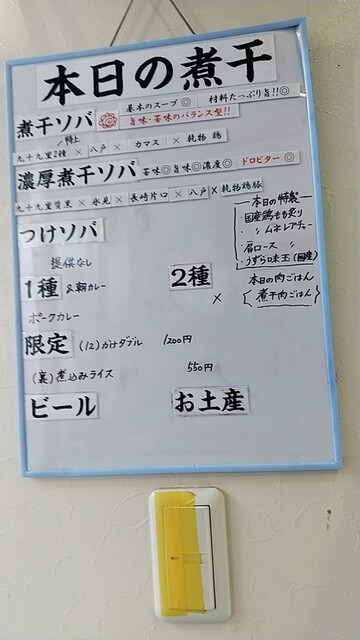 本日の煮干
煮干ソバ 基本のスープ◎ 材料たっぷり旨!!◎
旨味・苦味のバランス型!!
特上
九十九里2種 × 八戸 × カマス × 乾物 鶏
濃厚煮干ソバ 苦味◎旨味◎濃度◎ ドロピター◎
九十九里背黒 × 氷見 × 長崎片口 × 八戸 × 乾物鶏豚
本日の特製
・国産鶏もも炙り
・〃 ムネレアチャー
・肩ロース 〃
・うずら味玉(国産)
つけソバ
提供なし
1種 &朝カレー 2種
×
本日の肉ごはん
(煮干肉ごはん)
ポークカレー
限定 (12)かけダブル 1200円
(裏)煮込みライス 550円
ビール お土産